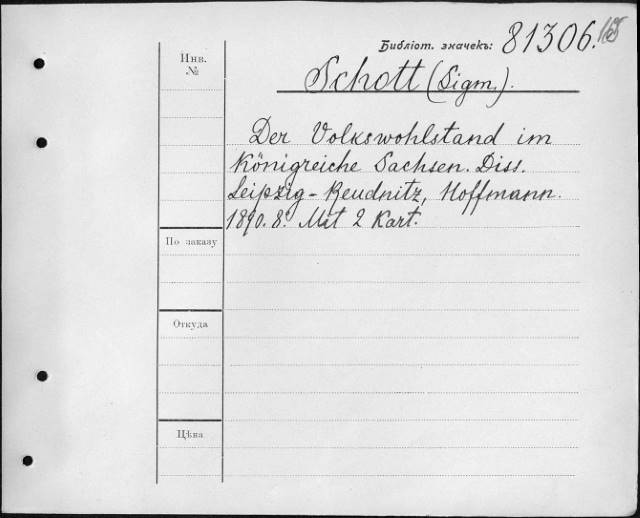 Библіот. значекъ: 81306.
Инв. №
Schott (Sigm.).
Der Volkswohlstand im
Königreiche Sachsen. Diss.
Leipzig-Reudnitz, Hoffmann.
1890. 8º Mit 2 Kart.
По заказу
Откуда
Цѣна